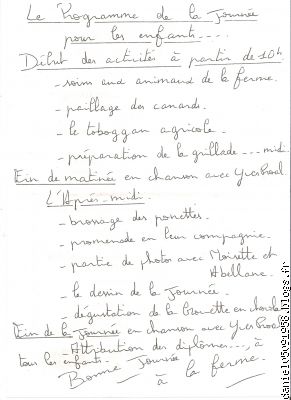 Le Programme de la Journée
pour les enfants....
Début des activités à partir de 10h
- soins aux animaux de la ferme.
- paillage des canards.
- le toboggan agricole.
- préparation de la grillade... midi.
Fin de matinée en chanson avec
L'Après-midi.
- brossage des ponettes.
- promenade en leur compagnie.
- partie de photo avec Noisette et
Abellane.
- le dessin de la Journée.
- dégustation de la brouette en chocolat
Fin de la Journée en chanson avec
- Attribution des diplômes..., à
tous les enfants.
Bonne Journée
à la ferme.
daniel05091958.blogs.fr